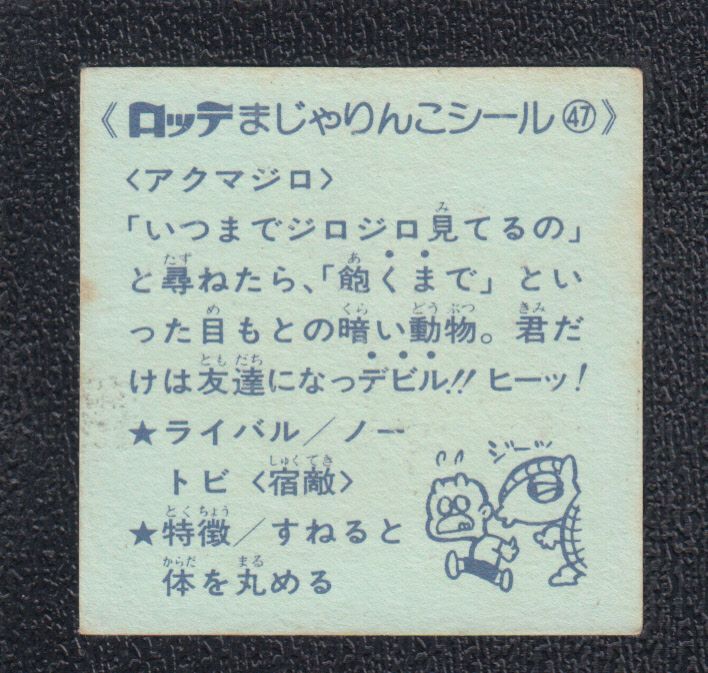 《ロッテまじゃりんこシール㊼》
〈アクマジロ〉
「いつまでジロジロ見てるの」
と尋ねたら、「飽くまで」とい
った目もとの暗い動物。君だ
けは友達になっデビル!! ヒーッ!
★ライバル/ノー
トビ〈宿敵〉
★特徴/すねると
体を丸める
ジーッ